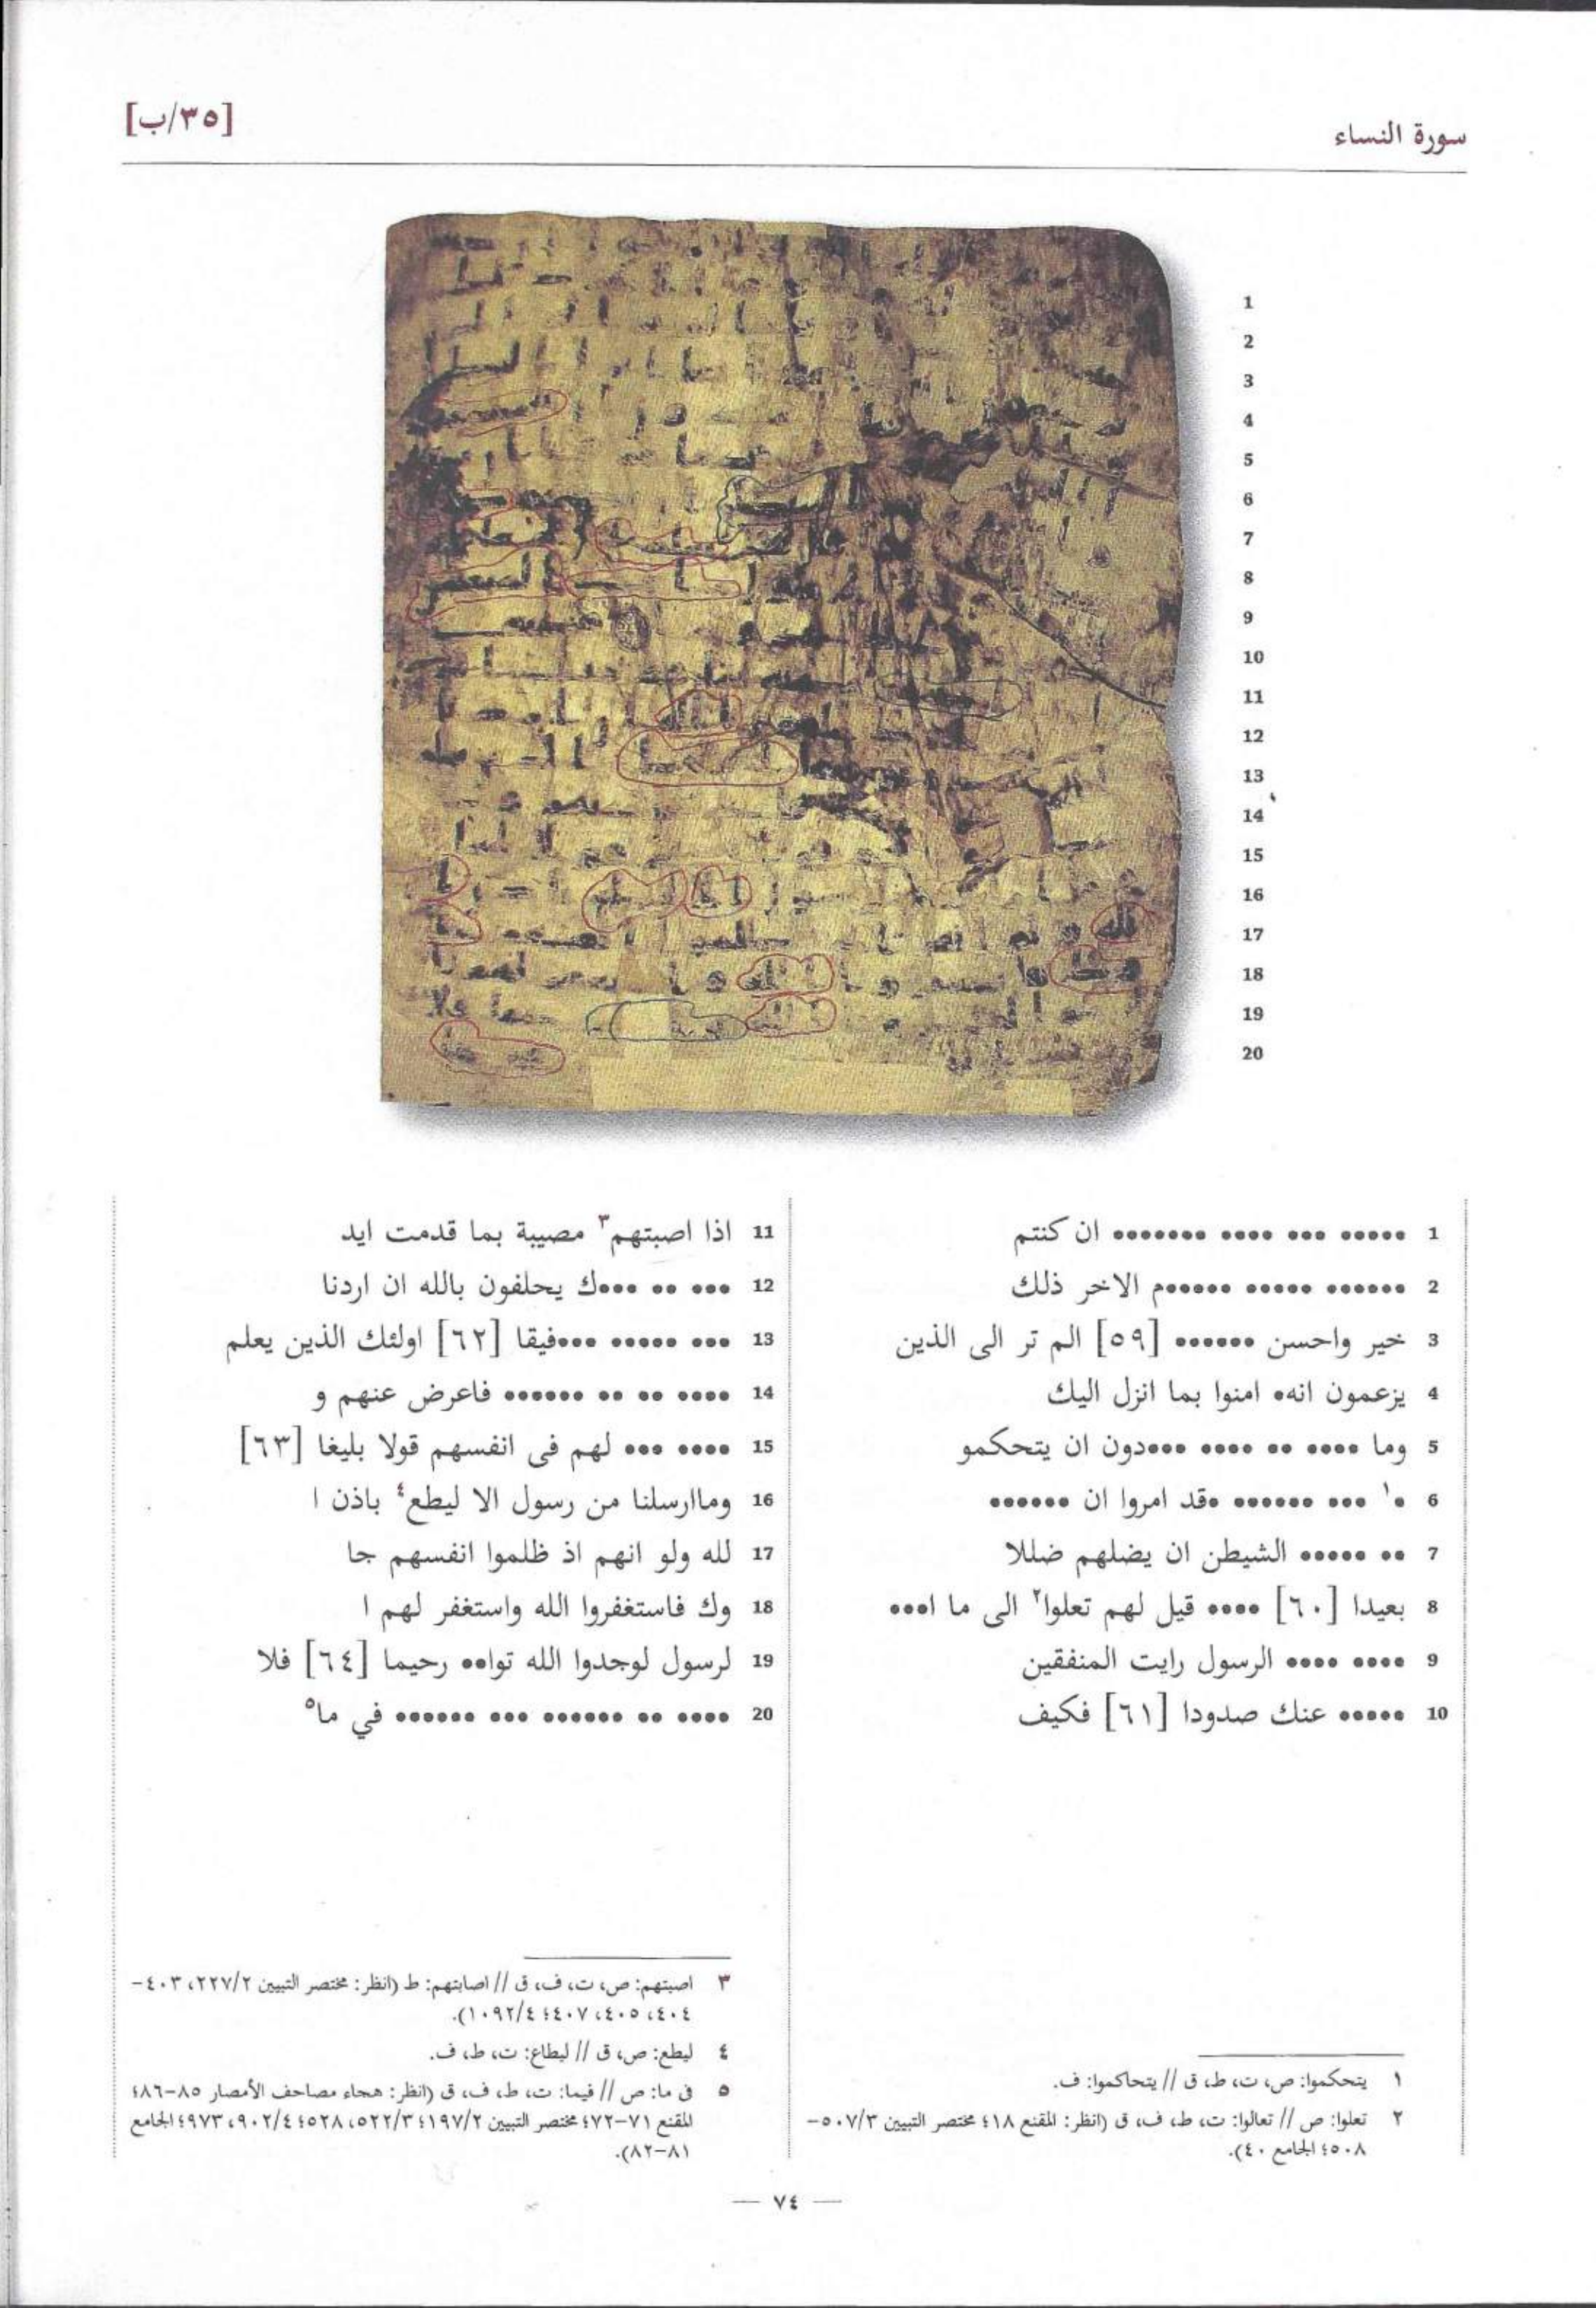 سورة النساء
[٣٥/ب]
1
2
3
4
5
6
7
8
9
10
11
12
13
14
15
16
17
18
19
20
1 ••••• ••• •••• ••••••• ان كنتم
2 •••••• ••••• ••••••م الاخر ذلك
3 خير واحسن •••••• [٥٩] الم تر الى الذين
4 يزعمون انه• امنوا بما انزل اليك
5 وما •••• •• •••• •••دون ان يتحكمو
6 •١ ••• •••••• •قد امروا ان ••••••
7 •• ••••• الشيطن ان يضلهم ضللا
8 بعيدا [٦٠] •••• قيل لهم تعلوا٢ الى ما ا•••
9 •••• •••• الرسول رايت المنفقين
10 ••••• عنك صدودا [٦١] فكيف
11 اذا اصبتهم٣ مصيبة بما قدمت ايد
12 ••• •• •••ك يحلفون بالله ان اردنا
13 ••• ••••• •••فيقا [٦٢] اولئك الذين يعلم
14 •••• •• •• •••••• فاعرض عنهم و
15 •••• ••• لهم فى انفسهم قولا بليغا [٦٣]
16 وماارسلنا من رسول الا ليطع٤ باذن ا
17 لله ولو انهم اذ ظلموا انفسهم جا
18 وك فاستغفروا الله واستغفر لهم ا
19 لرسول لوجدوا الله توا•• رحيما [٦٤] فلا
20 •••• •• •••••• ••• •••••• في ما٥
١ يتحكموا: ص، ت، ط، ق // يتحاكموا: ف.
٢ تعلوا: ص // تعالوا: ت، ط، ف، ق (انظر: المقنع ٤١٨؛ مختصر التبيين ٥٠٧/٣-
٥٠٨؛ الجامع ٤٠).
٣ اصبتهم: ص، ت، ف، ق // اصابتهم: ط (انظر: مختصر التبيين ٢٢٧/٢، ٤٠٣-
٤٠٤، ٤٠٥، ٤٠٧؛ ١٠٩٢/٤).
٤ ليطع: ص، ق // ليطاع: ت، ط، ف.
٥ فى ما: ص // فيما: ت، ط، ف، ق (انظر: هجاء مصاحف الأمصار ٨٥-٨٦؛
المقنع ٧١-٧٢؛ مختصر التبيين ١٩٧/٢؛ ٥٢٢/٣، ٥٢٨؛ ٩٠٢/٤، ٩٧٣؛ الجامع
٨١-٨٢).
— ٧٤ —